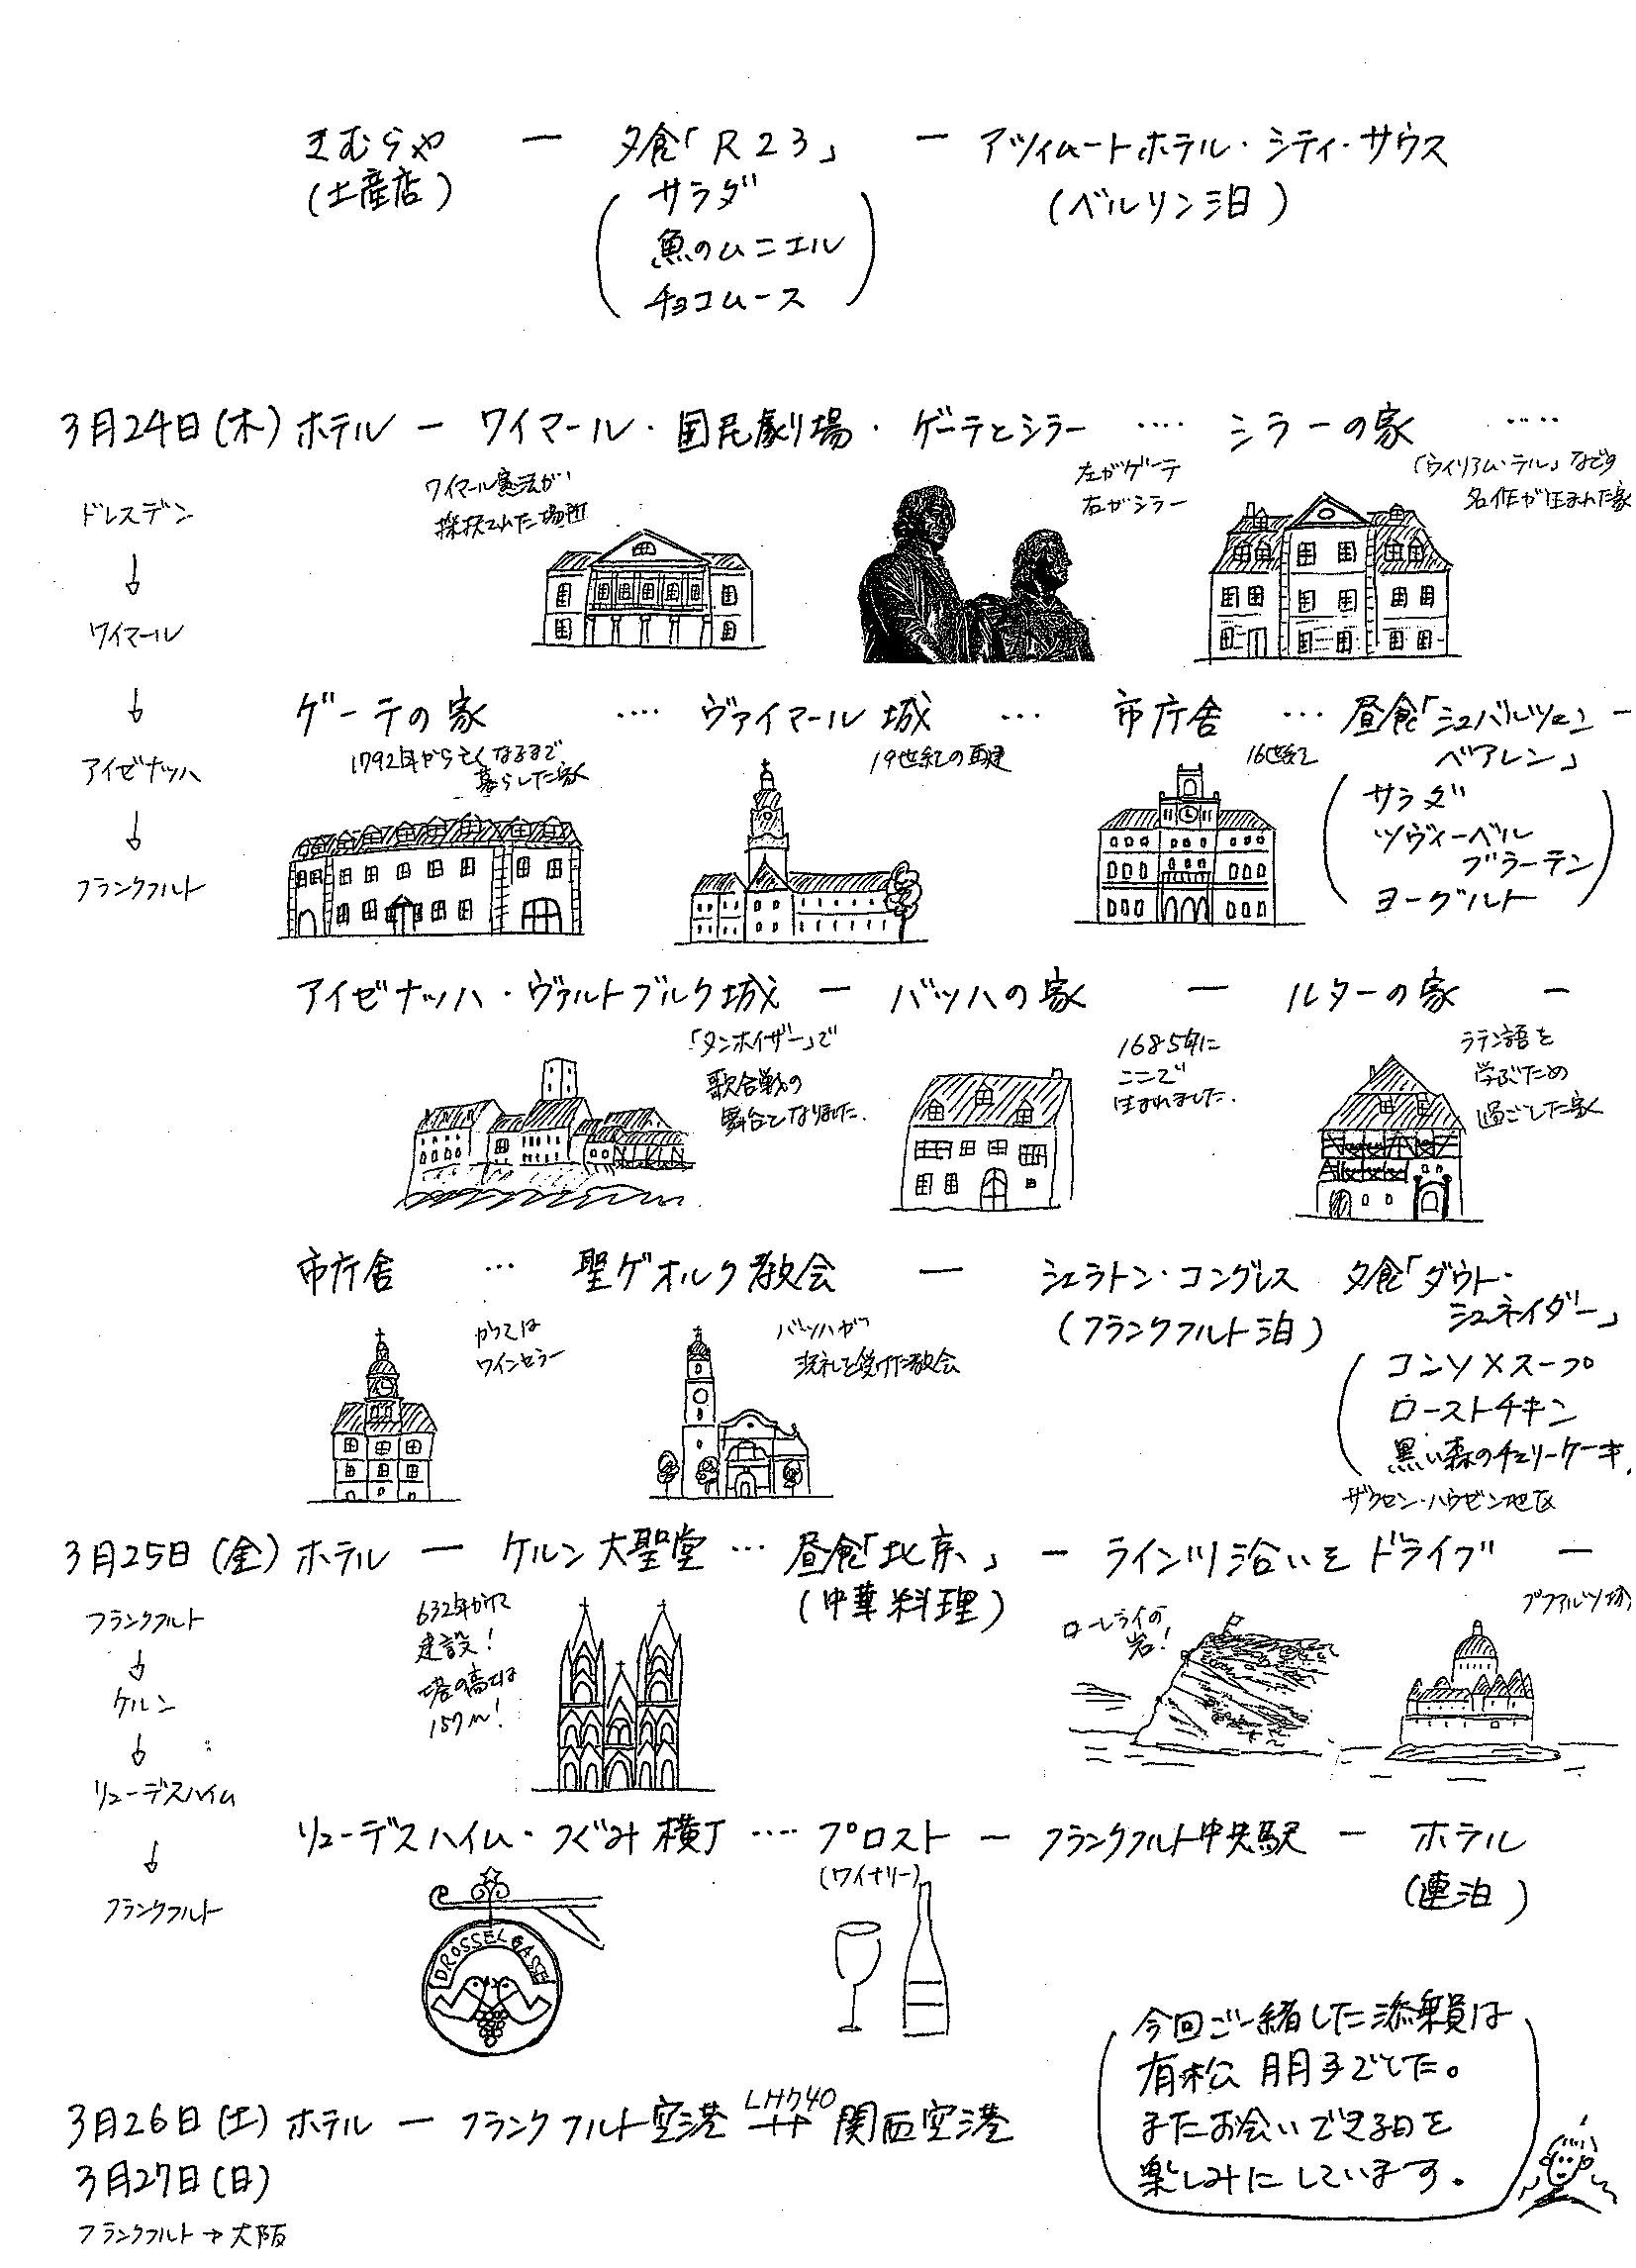 きむらや ー 夕食「R23」 ー アツィムートホテル・シティ・サウス
(土産店)
(ベルリン泊)
サラダ
魚のムニエル
チョコムース
3月24日(木) ホテル ー ワイマール・国民劇場・ゲーテとシラー …. シラーの家 …..
ワイマール憲法が
採択された場所
左がゲーテ
右がシラー
「ウィリアム・テル」などの
名作が生まれた家
ドレスデン
↓
ワイマール
↓
アイゼナッハ
↓
フランクフルト
ゲーテの家 …. ヴァイマール城 … 市庁舎 … 昼食「シュバルツェン ー
ベアレン」
1792年から亡くなるまで
暮らした家
19世紀の再建
16世紀
サラダ
ツヴィーベル
ブラーテン
ヨーグルト
アイゼナッハ・ヴァルトブルク城 ー バッハの家 ー ルターの家 ー
「タンホイザー」で
歌合戦の
舞台となりました.
1685年に
ここで
生まれました.
ラテン語を
学ぶため
過ごした家
市庁舎 … 聖ゲオルク教会 ー シェラトン・コングレス 夕食「ダウト・
シュネイダー」
(フランクフルト泊)
かつては
ワインセラー
バッハが
洗礼を受けた教会
コンソメスープ
ローストチキン
黒い森のチェリーケーキ
ザクセン・ハウゼン地区
3月25日(金) ホテル ー ケルン大聖堂 … 昼食「北京」 ー ライン川沿いをドライブ ー
(中華料理)
フランクフルト
↓
ケルン
↓
リューデスハイム
↓
フランクフルト
632年かけて
建設!
塔の高さは
157m!
ローレライの
岩!
プファルツ城
リューデスハイム・つぐみ横丁 …. プロスト ー フランクフルト中央駅 ー ホテル
(ワイナリー)
(連泊)
DROSSELGASSE
今回ご一緒した添乗員は
有松 朋子でした。
またお会いできる日を
楽しみにしています。
3月26日(土) ホテル ー フランクフルト空港 LH740 関西空港
3月27日(日)
フランクフルト→大阪